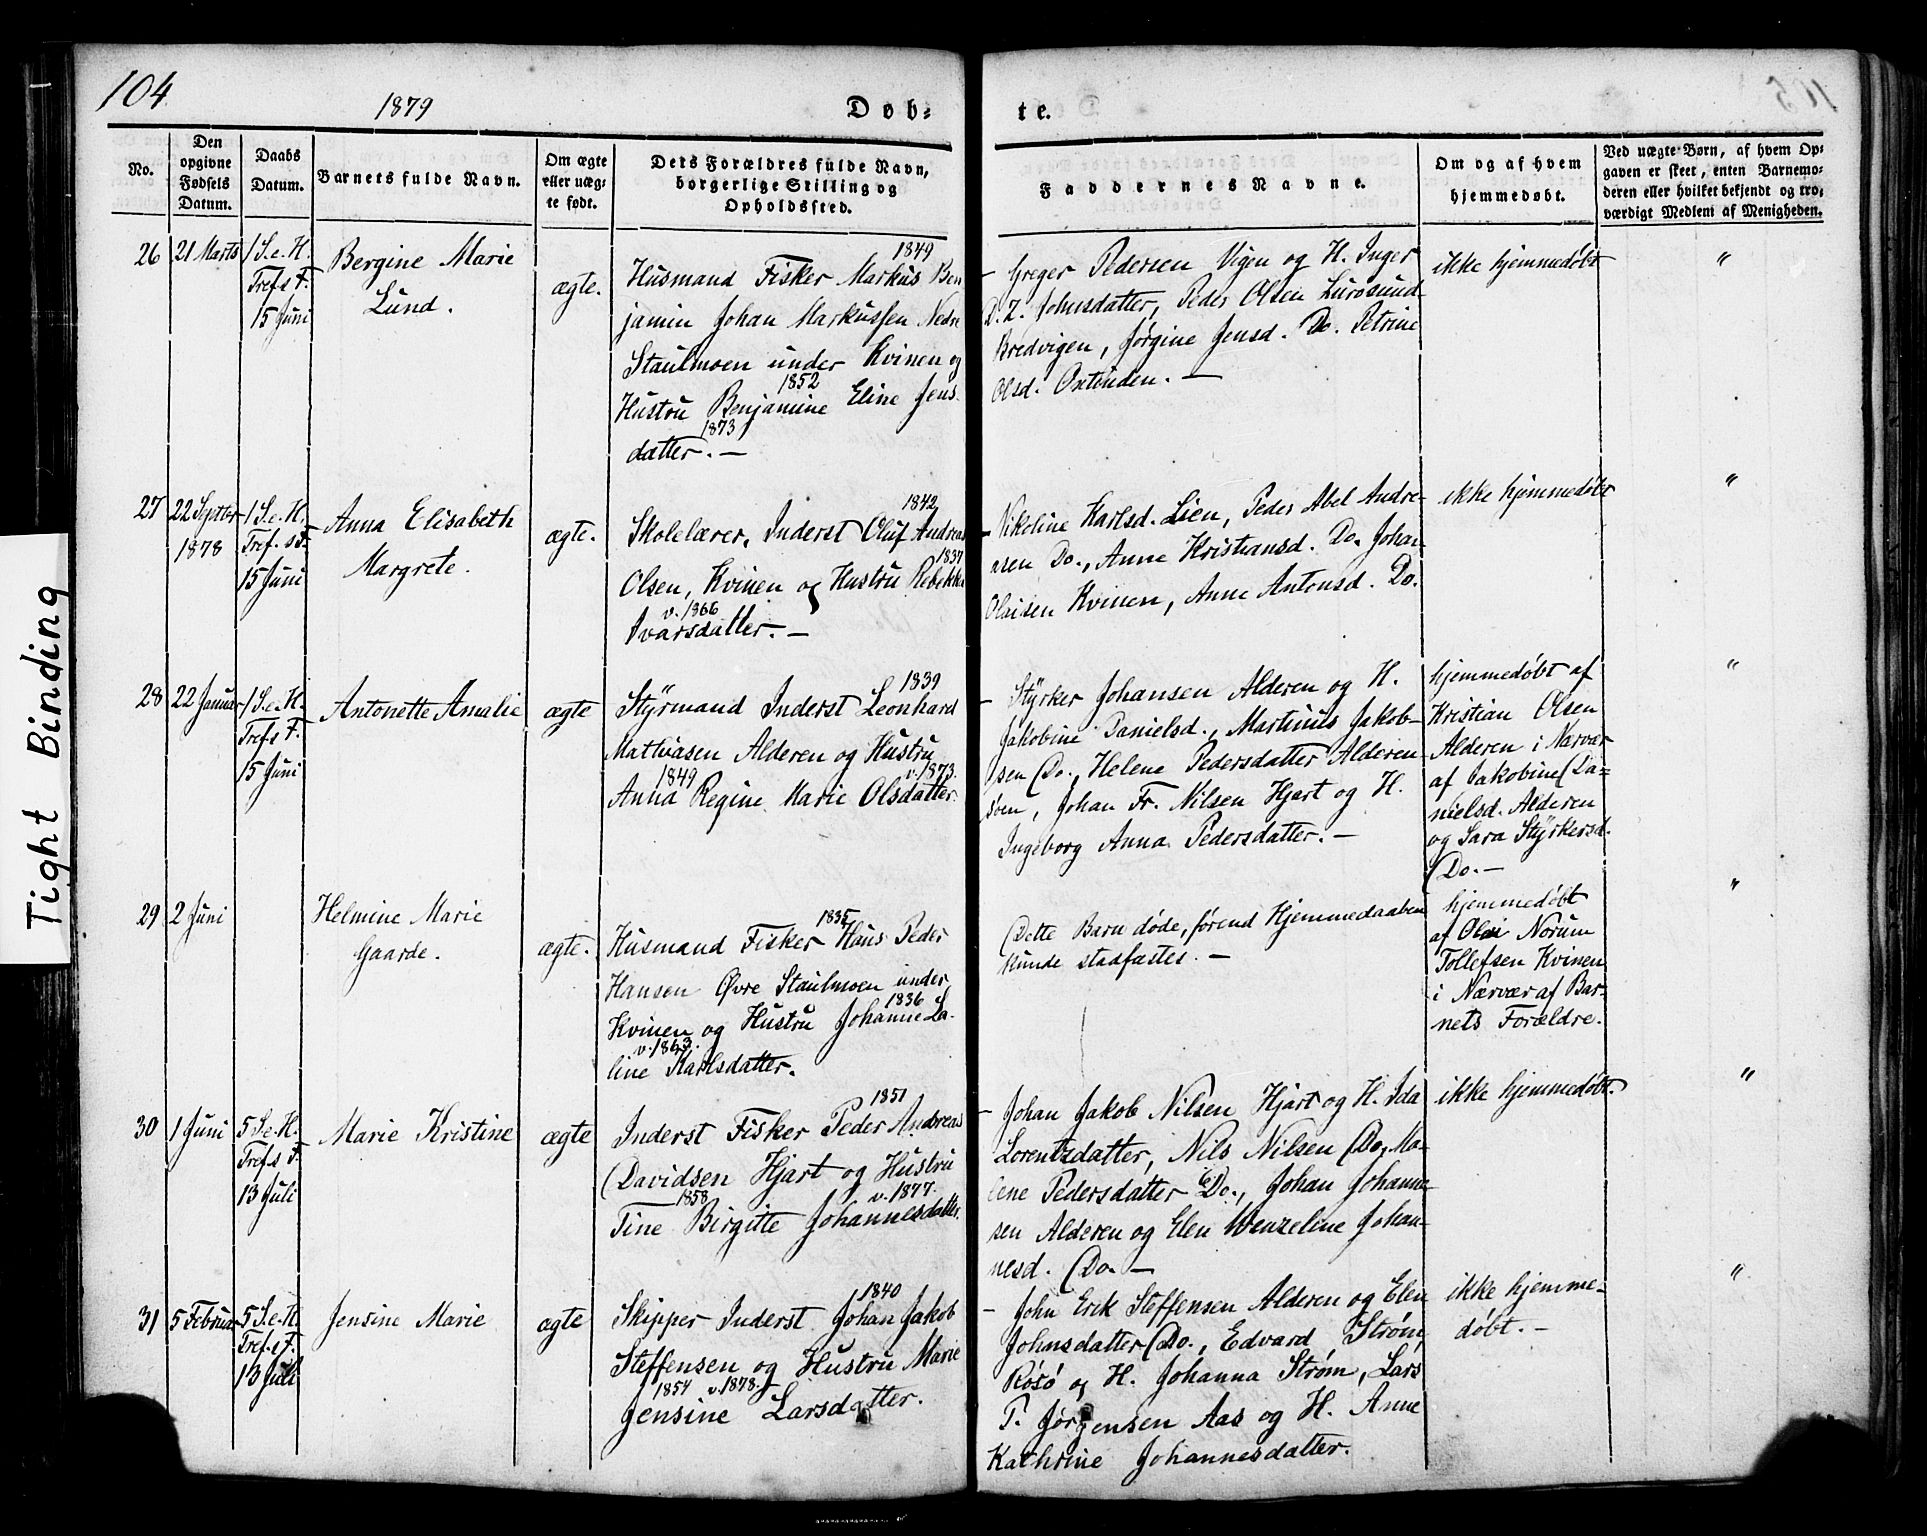 104
1879
Døb-
te.
No.
Den
opgivne
Fødsels
Datum.
Daabs
Datum.
Barnets fulde Navn.
Om ægte
eller uæg-
te født.
Dets Forældres fulde Navn,
borgerlige Stilling og
Opholdssted.
Faddernes Navne.
Om og af hvem
hjemmedøbt.
Ved uægte Børn, af hvem Op-
gaven er skeet, enten Barnemo-
deren eller hvilket bekjendt og tro-
værdigt Medlem af Menigheden.
26
21 Marts
1 S. e. H.
Tref s F.
15 Juni
Bergine Marie
Lund.
ægte.
1849
Husmand Fisker Markus Ben
jamin Johan Markussen Nedre
Staulmoen under Kvinen og
1852
Hustru Benjamine Eline Jens-
1873
datter. —
— Greger Pedersen Vigen og H. Inger
D. Z. Johnsdatter, Peder Olsen Lurøsund
Bredvigen, Jørgine Jensd. Do. Petrine
Olsd. Oxtinden. —
ikke hjemmedøbt
"
27
22 Septbr
1878
1 S. e. H.
Tref. s F.
15 Juni
Anna Elisabeth
Margrete.
ægte.
1842
Skolelærer, Inderst Oluf Andreas
1837
Olsen, Kvinen og Hustru Rebekka
v. 1866
Ivarsdatter. —
— Nikoline Karlsd. Lien, Peder Abel Andre-
asen Do., Anne Kristiansd. Do. Johan
Olaisen Kvinen, Anne Antonsd. Do.
ikke hjemmedøbt
"
28
22 Januar
1 S. e. H.
Tref s F.
15 Juni
Antonette Amalie
ægte
1839
Styrmand Inderst Leonhard
Mathiasen Alderen og Hustru
1849 v. 1873.
Anna Regine Marie Olsdatter.
— Styrker Johansen Alderen og H.
Jakobine Danielsd., Martinus Jakob-
sen Do., Helene Pedersdatter Alderen
søen, Johan Fr. Nilsen Hjart og H.
Ingeborg Anna Pedersdatter. —
hjemmedøbt af
Kristian Olsen
Alderen i Nærvær
af Jakobine Da=
nielsd. Alderen
og Sara Styrkersd.
Do. —
"
29
2 Juni
Helmine Marie
Gaarde.
ægte.
1835
Husmand Fisker Hans Peder
Hansen Øvre Staulmoen under
1836
Kvinen og Hustru Johanne La-
v. 1863.
line Karlsdatter.
Dette Barn døde, førend Hjemmedaaben
kunde stadfæstes. —
hjemmedøbt
af Olai Norum
Tollefsen Kvinen
i Nærvær af Bar-
nets Forældre.
"
30
1 Juni
5 S. e. H.
Tref s F.
13 Juli
Marie Kristine
ægte
1851
Inderst Fisker Peder Andreas
Davidsen Hjart og Hustru
1858 v. 1877.
Tine Birgitte Johannesdatter.
— Johan Jakob Nilsen Hjart og H. Ida
Lorentzdatter, Nils Nilsen Do., Ma-
lene Pedersdatter Do., Johan Johanne-
sen Alderen og Elen Wenzeline Johan-
nesd. Do. —
ikke hjemmedøbt.
"
31
5 Februar
5 S. e. H.
Tref. s F.
13 Juli
Jensine Marie
ægte
1840
Skipper Inderst Johan Jakob
Steffensen og Hustru Marie
1854 v. 1878.
Jensine Larsdatter.
— John Erik Steffensen Alderen og Elen
Johnsdatter Do., Edvard Strøm
Røsø og H. Johanna Strøm, Lars
P. Jørgensen Aas og H. Anne
Kathrine Johannesdatter.
ikke hjemme-
døbt. —
"
Tight Binding